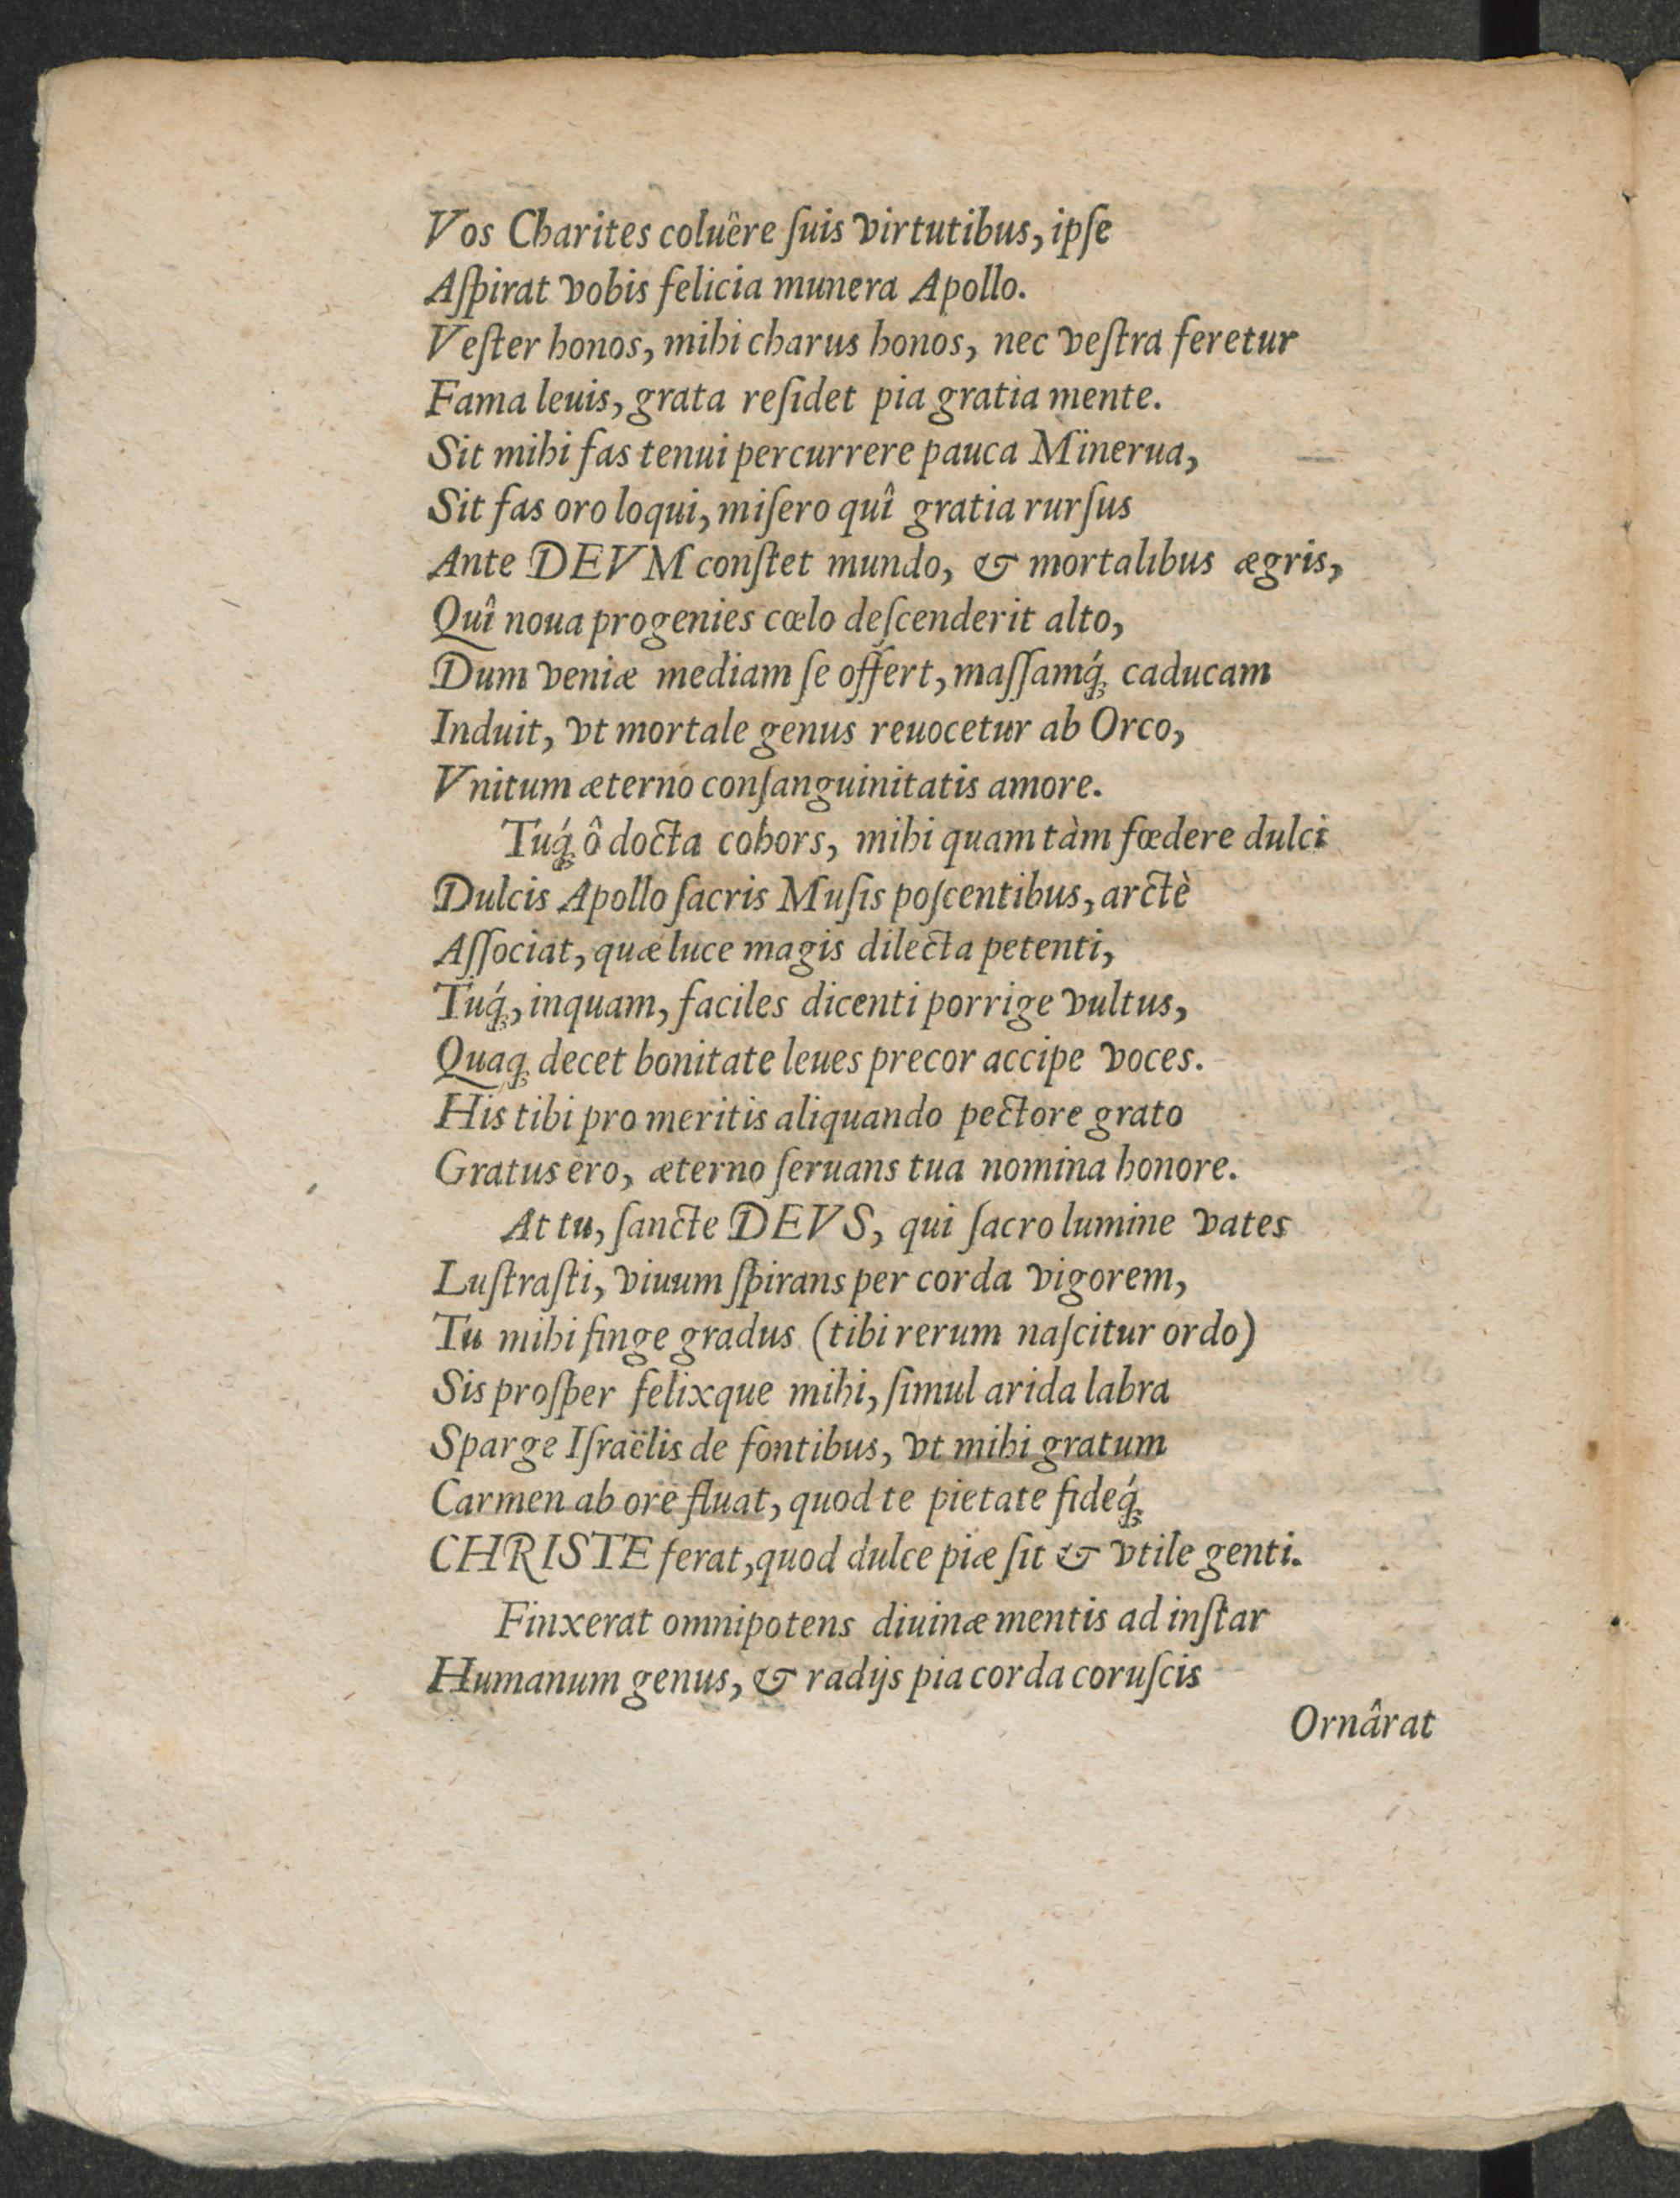 Vos Charites coluêre ſuis virtutibus, ipſe
Aſpirat vobis felicia munera Apollo.
Veſter honos, mihi charus honos, nec veſtra feretur
Fama leuis, grata reſidet pia gratia mente.
Sit mihi fas tenui percurrere pauca Minerua,
Sit fas oro loqui, miſero quî gratia rurſus
Ante DEVM conſtet mundo, & mortalibus ægris,
Quî noua progenies cœlo deſcenderit alto,
Dum veniæ mediam ſe offert, maſſamq́; caducam
Induit, vt mortale genus reuocetur ab Orco,
Vnitum æterno conſanguinitatis amore.
Tuq́; ô docta cohors, mihi quam tàm fœdere dulci
Dulcis Apollo ſacris Muſis poſcentibus, arctè
Aſſociat, quæ luce magis dilecta petenti,
Tuq́;, inquam, faciles dicenti porrige vultus,
Quaq; decet bonitate leues precor accipe voces.
His tibi pro meritis aliquando pectore grato
Gratus ero, æterno ſeruans tua nomina honore.
At tu, ſancte DEVS, qui ſacro lumine vates
Luſtraſti, viuum ſpirans per corda vigorem,
Tu mihi finge gradus (tibi rerum naſcitur ordo)
Sis proſper felixque mihi, ſimul arida labra
Sparge Iſraëlis de fontibus, vt mihi gratum
Carmen ab ore fluat, quod te pietate fideq́;
CHRISTE ferat, quod dulce piæ ſit & vtile genti.
Finxerat omnipotens diuinæ mentis ad inſtar
Humanum genus, & radijs pia corda coruſcis
Ornârat